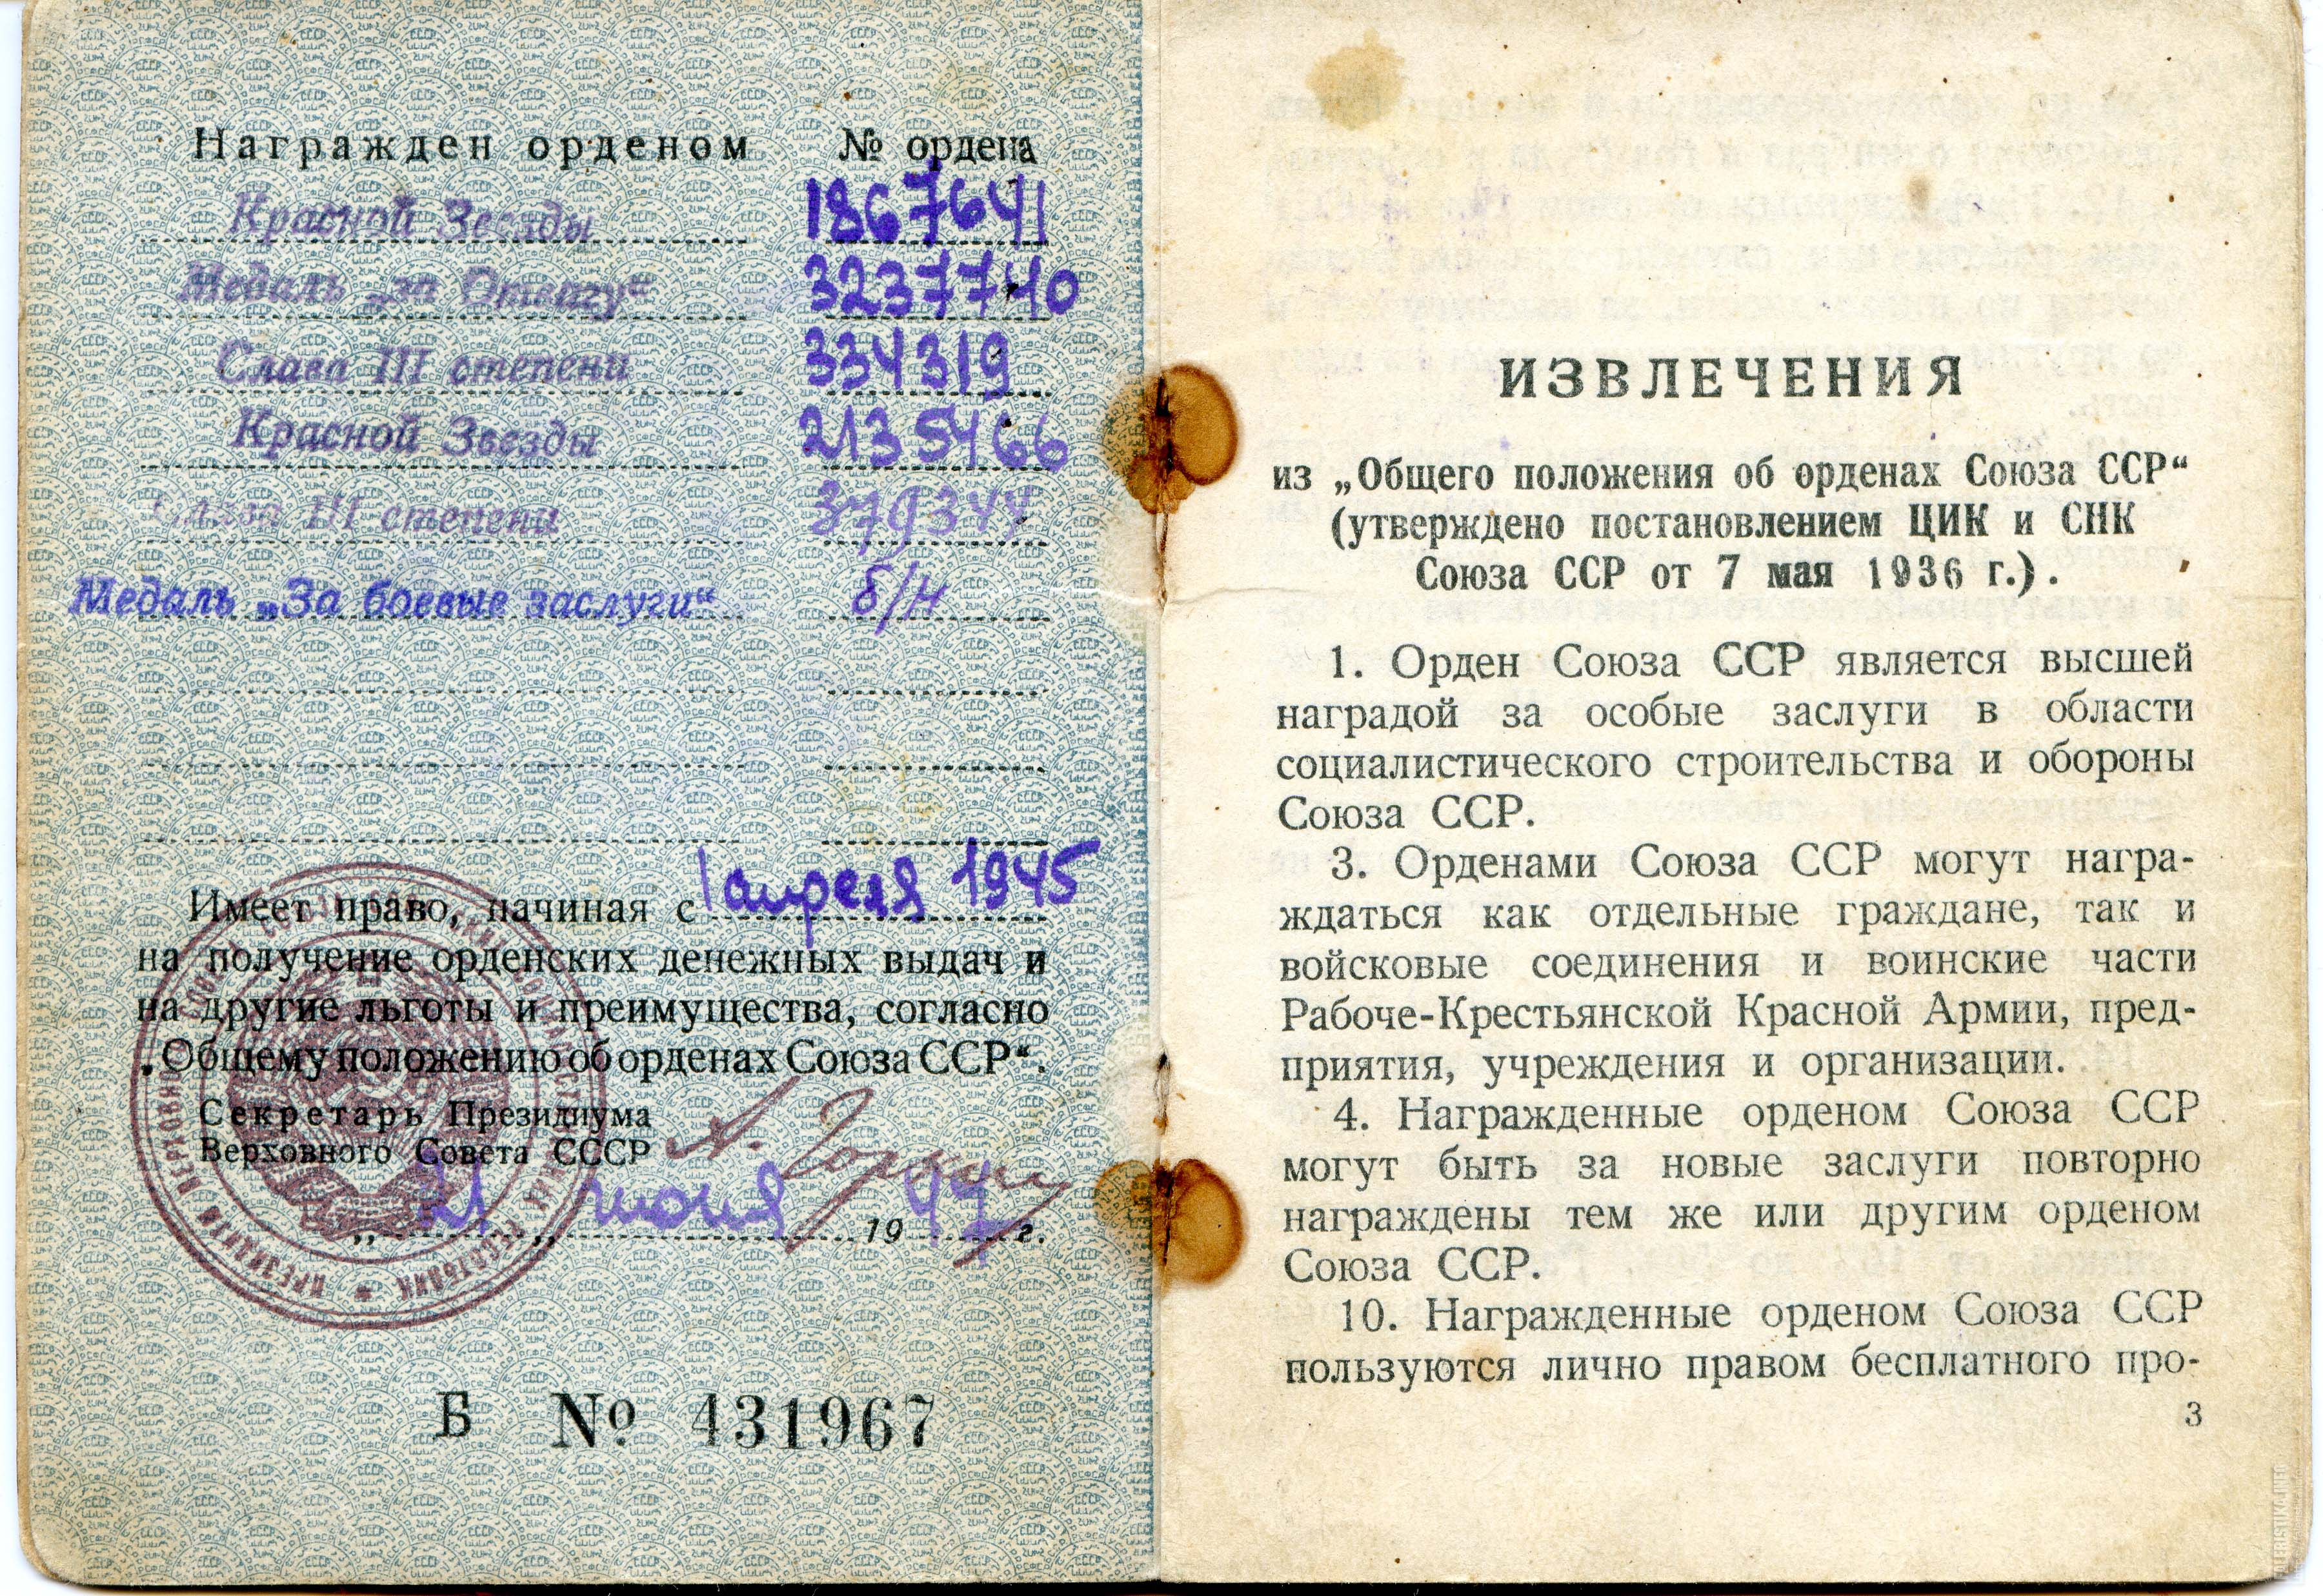 Награжден орденом № ордена
Красной Звезды 1867641
Медаль „за Отвагу“ 3237740
Слава III степени 334319
Красной Звезды 2135466
Слава III степени 379344
Медаль „За боевые заслуги“ б/н
Имеет право, начиная с 1 апреля 1945
на получение орденских денежных выдач и
на другие льготы и преимущества, согласно
„Общему положению об орденах Союза ССР“.
Секретарь Президиума
Верховного Совета СССР А. Горкин
„21„ июня 1947 г.
Б № 431967
ИЗВЛЕЧЕНИЯ
из „Общего положения об орденах Союза ССР“
(утверждено постановлением ЦИК и СНК
Союза ССР от 7 мая 1936 г.).
1. Орден Союза ССР является высшей
наградой за особые заслуги в области
социалистического строительства и обороны
Союза ССР.
3. Орденами Союза ССР могут награ-
ждаться как отдельные граждане, так и
войсковые соединения и воинские части
Рабоче-Крестьянской Красной Армии, пред-
приятия, учреждения и организации.
4. Награжденные орденом Союза ССР
могут быть за новые заслуги повторно
награждены тем же или другим орденом
Союза ССР.
10. Награжденные орденом Союза ССР
пользуются лично правом бесплатного про-
3
FALERISTIKA.INFO